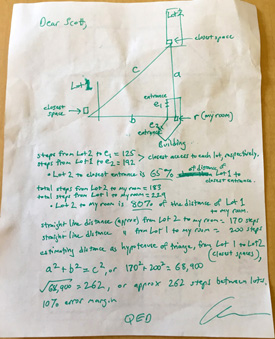 Dear Scott,
Lot 2
closest space
c
a
Lot 1
closest
space
b
entrance
e₁
e₂
entrance
r (my room)
Building
steps from Lot 2 to e₁ = 125
steps from Lot 1 to e₂ = 192
> closest access to each lot, respectively.
• Lot 2 to closest entrance is 65% of distance of Lot 1 to closest entrance.
total steps from Lot 2 to my room = 183
total steps from Lot 1 to my room =
• Lot 2 to my room is 80% of the distance of Lot 1
to my room.
straight line distance (approx) from Lot 2 to my room = 170 steps
straight line distance " from Lot 1 to my room = 200 steps
estimating distance as hypotenuse of triangle, from Lot 1 to Lot 2
(closest spaces),
a² + b² = c², or 170² + 200² = 68,900
√68,900 = 262, or approx 262 steps between lots.
10% error margin
QED